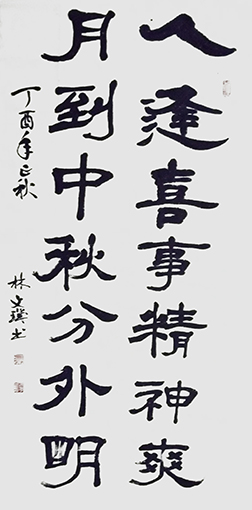 人逢喜事精神爽
月到中秋分外明
丁酉年正秋
林文书